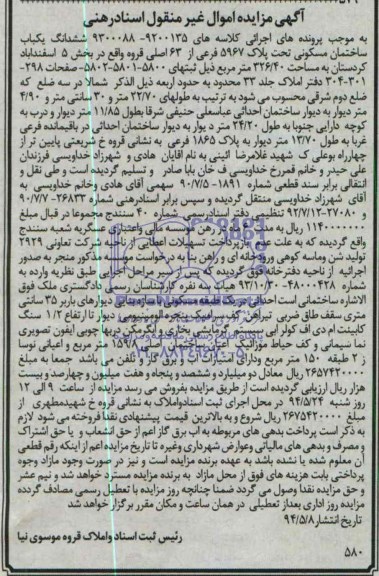 آگهی مزایده اموال غیر منقول اسناد رهنی
به موجب پرونده های اجرائی کلاسه های ۹۲۰۰۱۳۵- ۹۳۰۰۰۸۸ ششدانگ یکباب
ساختمان مسکونی تحت پلاک ۵۹۶۷ فرعی از ۶۳ اصلی قروه واقع در بخش ۵ اسفندآباد
کردستان به مساحت ۳۲۶/۴۰ متر مربع ذیل ثبتهای ۵۸۰۰-۵۸۰۱-۵۸۰۲-صفحات ۲۹۸-
۳۰۱-۳۰۴ دفتر املاک جلد ۳۳ محدود به حدود اربعه ذیل الذکر شمالا در سه ضلع که
ضلع دوم شرقی محسوب می شود به ترتیب به طولهای ۲۲/۷۰ متر و ۳۰ سانتی متر و ۴/۹۰
متر دیوار به دیوار ساختمان احداثی عباسعلی حنیفی شرقا بطول ۱۱/۸۵ متر دیوار و درب به
کوچه دارایی جنوبا به طول ۲۴/۲۰ متر دیوار به دیوار ساختمان احداثی در باقیمانده فرعی
غربا به طول ۱۳/۷۰ متر دیوار به پلاک ۱۸۶۵ فرعی به نشانی قروه خ شریعتی پایین تر از
چهارراه بوعلی ک شهید غلامرضا ائینی به نام آقایان هادی و شهرزاد خداویسی فرزندان
علی حیدر و خانم قمررخ خداویسی ف خان بابا صادر و تسلیم گردیده است و طی نقل و
انتقالی برابر سند قطعی شماره ۱۸۹۱- ۹۰/۷/۵ سهمی آقای هادی وخانم خداویسی به
آقای شهرزاد خداویسی منتقل گردیده و سپس برابر اسناد رهنی شماره ۲۶۸۳۳- ۹۰/۷/۷
و ۲۷۰۸۰- ۹۲/۷/۱۲ تنظیمی دفتر اسناد رسمی شماره ۴۰ سنندج مجموعا در قبال مبلغ
۱۱۴۰۰۰۰۰۰۰ ریال به مدت در رهن موسسه مالی واعتباری عسکریه شعبه سنندج
واقع گردیده که به علت عدم بازپرداخت تسهیلات اعطایی از ناحیه شرکت تعاونی ۲۹۲۹
تولید شن وماسه کوهی ورودخانه ای و راهن بنا به درخواست موسسه مذکور منجر به صدور
اجرائیه از ناحیه دفترخانه فوق گردیده که پس از سیر مراحل اجرائی طبق نظریه وارده به
شماره ۴۸۰۰۰۴۲۸- ۹۳/۱۰/۶ هیات سه نفره کارشناسان رسمی دادگستری ملک فوق
الاشاره ساختمانی است احداثی در یک طبقه مسکونی با سازه بنای دیوارهای باربر ۳۵ سانتی
متری سقف طاق ضربی تیرآهن کف سرامیک پنجره آلومینیومی دیوار تا ارتفاع ۱/۲ سنگ
کابینت ام دی اف کولر آبی سیستم گرمایشی بخاری و آبگرمکن دربها چوبی آیفون تصویری
نما سیمانی و کف حیاط موزائیک اعیان ساختمان اصلی ۱۵۹/۸ متر مربع و اعیانی نوسا
ز ۲ طبقه ۱۵۰ متر مربع ودارای امتیازات آب و برق گاز و تلفن می باشد جمعا به مبلغ
۲۶۵۷۴۲۰۰۰۰ ریال معادل دو میلیارد و ششصد و پنجاه و هفت میلیون و چهارصد و بیست
هزار ریال ارزیابی گردیده است از طریق مزایده بفروش می رسد مزایده از ساعت ۹ الی ۱۲
روز شنبه ۹۴/۵/۲۴ در محل اجرای ثبت اسناد واملاک به نشانی قروه خ شهید مطهری از
۲۶۷۵۴۲۰۰۰۰ ریال شروع و به بالاترین قیمت پیشنهادی نقدا فروخته می شود لازم
به ذکر است پرداخت بدهی های مربوطه به آب برق گاز اعم از حق انشعاب و یا حق اشتراک
و مصرف و بدهی های مالیاتی وعوارض شهرداری وغیره تا تاریخ مزایده اعم از اینکه رقم قطعی
آن معلوم شده یا نشده باشد به عهده برنده مزایده است و نیز در صورت وجود مازاد وجوه
پرداختی بابت هزینه های فوق از محل مازاد به برنده مزایده مسترد خواهد شد و نیم عشر
و حق مزایده نقدا وصول می گردد ضمنا چنانچه روز مزایده با تعطیل رسمی مصادف گردد
مزایده روز اداری بعد از تعطیلی در همان ساعت و مکان مقرر برگزار خواهد شد
تاریخ انتشار ۹۴/۵/۸
رئیس ثبت اسناد واملاک قروه موسوی نیا
۵۸۰